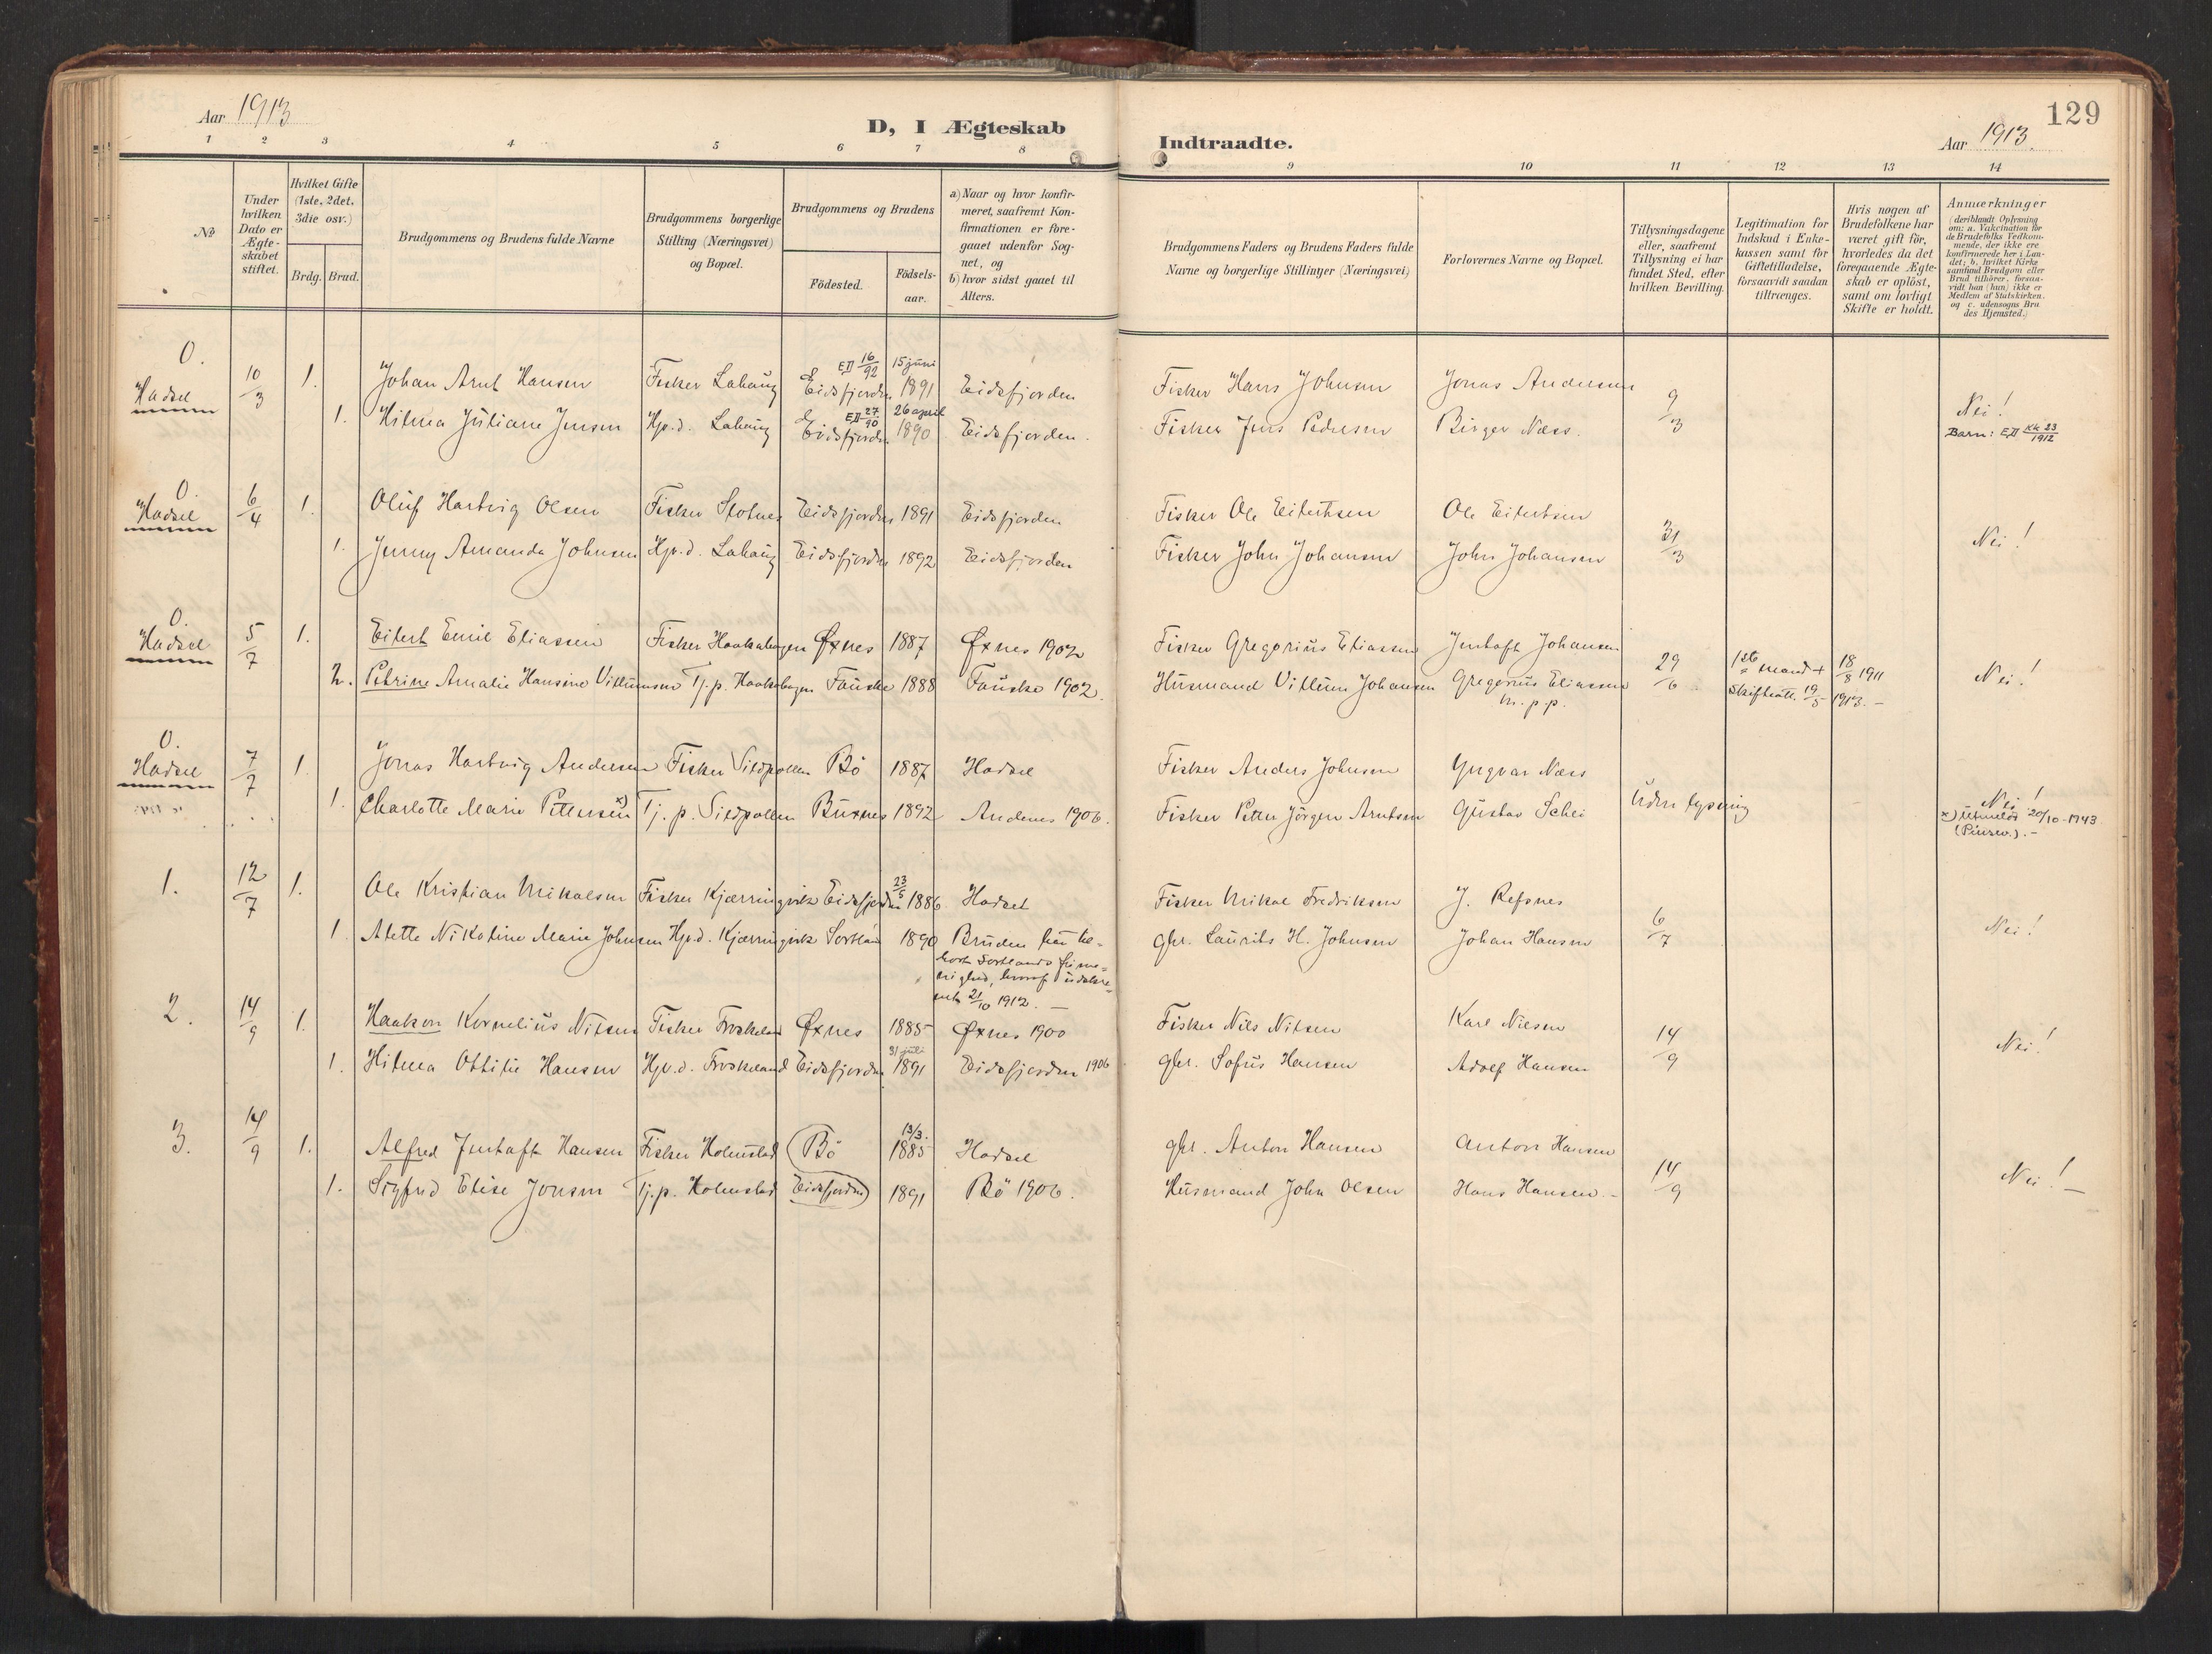 129
Aar 1913
D, I Ægteskab
Indtraadte.
Aar 1913.
1 2 3 4 5 6 7 8 9 10 11 12 13 14
No
Under hvilken Dato er Ægte-skabet stiftet.
Hvilket Gifte (1ste, 2det, 3die osv.)
Brdg. Brud.
Brudgommens og Brudens fulde Navne
Brudgommens borgerlige Stilling (Næringsvei) og Bopæl.
Brudgommens og Brudens
Födested.
Födsels-aar.
a) Naar og hvor konfir-meret, saafremt Kon-firmationen er fore-gaaet udenfor Sog-net, og
b) hvor sidst gaaet til Alters.
Brudgommens Faders og Brudens Faders fulde Navne og borgerlige Stillinger (Næringsvei)
Forlovernes Navne og Bopæl.
Tillysningsdagene eller, saafremt Tillysning ei har fundet Sted, efter hvilken Bevilling.
Legitimation for Indskud i Enke-kassen samt for Giftetilladelse, forsaavidt saadan tiltrænges.
Hvis nogen af Brudefolkene har været gift för, hvorledes da det foregaaende Ægte-skab er oplöst, samt om lovligt Skifte er holdt.
Anmærkninger (deriblandt Oplysning om: a. Vakcination for de Brudefolks Vedkom-mende, der ikke ere konfirmerede her i Lan-det; b. hvilket Kirke-samfund Brudgom eller Brud tilhörer, forsaa-vidt han (hun) ikke er Medlem af Statskirken. og c. udensogns Bru-des Hjemsted.)
O. Hadsel 10/3 1. Johan Arnt Hansen Fisker Lahaug EJ 16/92 Eidsfjorden 15 juni 1891 Eidsfjorden Fisker Hans Johnsen Jonas Andersen 9/3 Nei!
1. Hilma Juliane Jensen Hp.d. Lahaug EJ 27/90 Eidsfjorden 26 april 1890 Eidsfjorden. Fisker Jens Pedersen Birger Næss. Barn: EJ KK 23/1912
O. Hadsel 6/4 1. Oluf Hartvig Olsen Fisker Slotnes Eidsfjorden 1891 Eidsfjorden Fisker Ole Eilertsen Ole Eilertsen 31/3 Nei!
1. Jenny Amanda Johnsen Hp.d. Lahaug Eidsfjorden 1892 Eidsfjorden Fisker John Johansen John Johansen
O. Hadsel 5/7 1. Eilert Emil Eliassen Fisker Haakabogen Øxnes 1887 Øxnes 1902 Fisker Gregorius Eliassen Jentoft Johansen 29/6 1ste mand + 18/8 1911 Nei!
2. Petrine Amalie Hansine Villumsen Tj.p. Haakabogen Fauske 1888 Fauske 1902. Husmand Villum Johansen Gregorius Eliassen m.p.p. Skifteatt. 19/5 1913.-
O. Hadsel 7/7 1. Jonas Hartvig Andersen Fisker Sildpollen Bö 1887 Hadsel Fisker Anders Johnsen Yngvar Næss Uden lysning Nei!
1. Charlotte Marie Pettersen x) Tj.p. Sildpollen Buxnes 1892 Andenes 1906. Fisker Petter Jörgen Arntsen Gustav Schei x) Utmeldt 20/10-1943 (Pinsev.).-
1. 12/7 1. Ole Kristian Mikalsen Fisker Kjærringvik Eidsfjorden 23/5 1886 Hadsel Fisker Mikal Fredriksen J. Refsnes 6/7 Nei!
1 Alette Nikoline Marie Johnsen Hp.d. Kjærringvik Sortland 1890 Bruden har til-hört Sortlands frime-nighed, hvoraf udskre-vet 21/10 1912.- gbr. Laurits H. Johnsen Johan Hansen
2. 14/9 1. Haakon Kornelius Nilsen Fisker Froskeland Øxnes 1885 Øxnes 1900 Fisker Nils Nilsen Karl Nilsen 14/9 Nei!
1. Hilma Ottilie Hansen Hp.d. Froskeland Eidsfjorden 31 juli 1891 Eidsfjorden 1906 gbr. Sofus Hansen Adolf Hansen
3. 14/9 1. Alfred Jentoft Hansen Fisker Holmstad Bö 13/3. 1885 Hadsel gbr. Anton Hansen Anton Hansen 14/9 Nei!-
1. Sigfrid Elise Jonsen Tj.p. Holmstad Eidsfjorden 1891 Bö 1906. Husmand John Olsen Hans Hansen.-